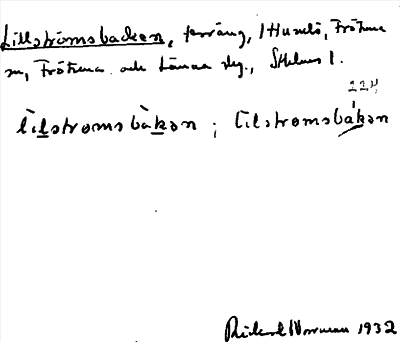 Lillströmsbacken, terräng, i Husarö,
sn, Frötuna och Länna slg., Sthlms l.
224
lilstromsbàkən ; lilstromsbákən
Rickard Norrman 1932